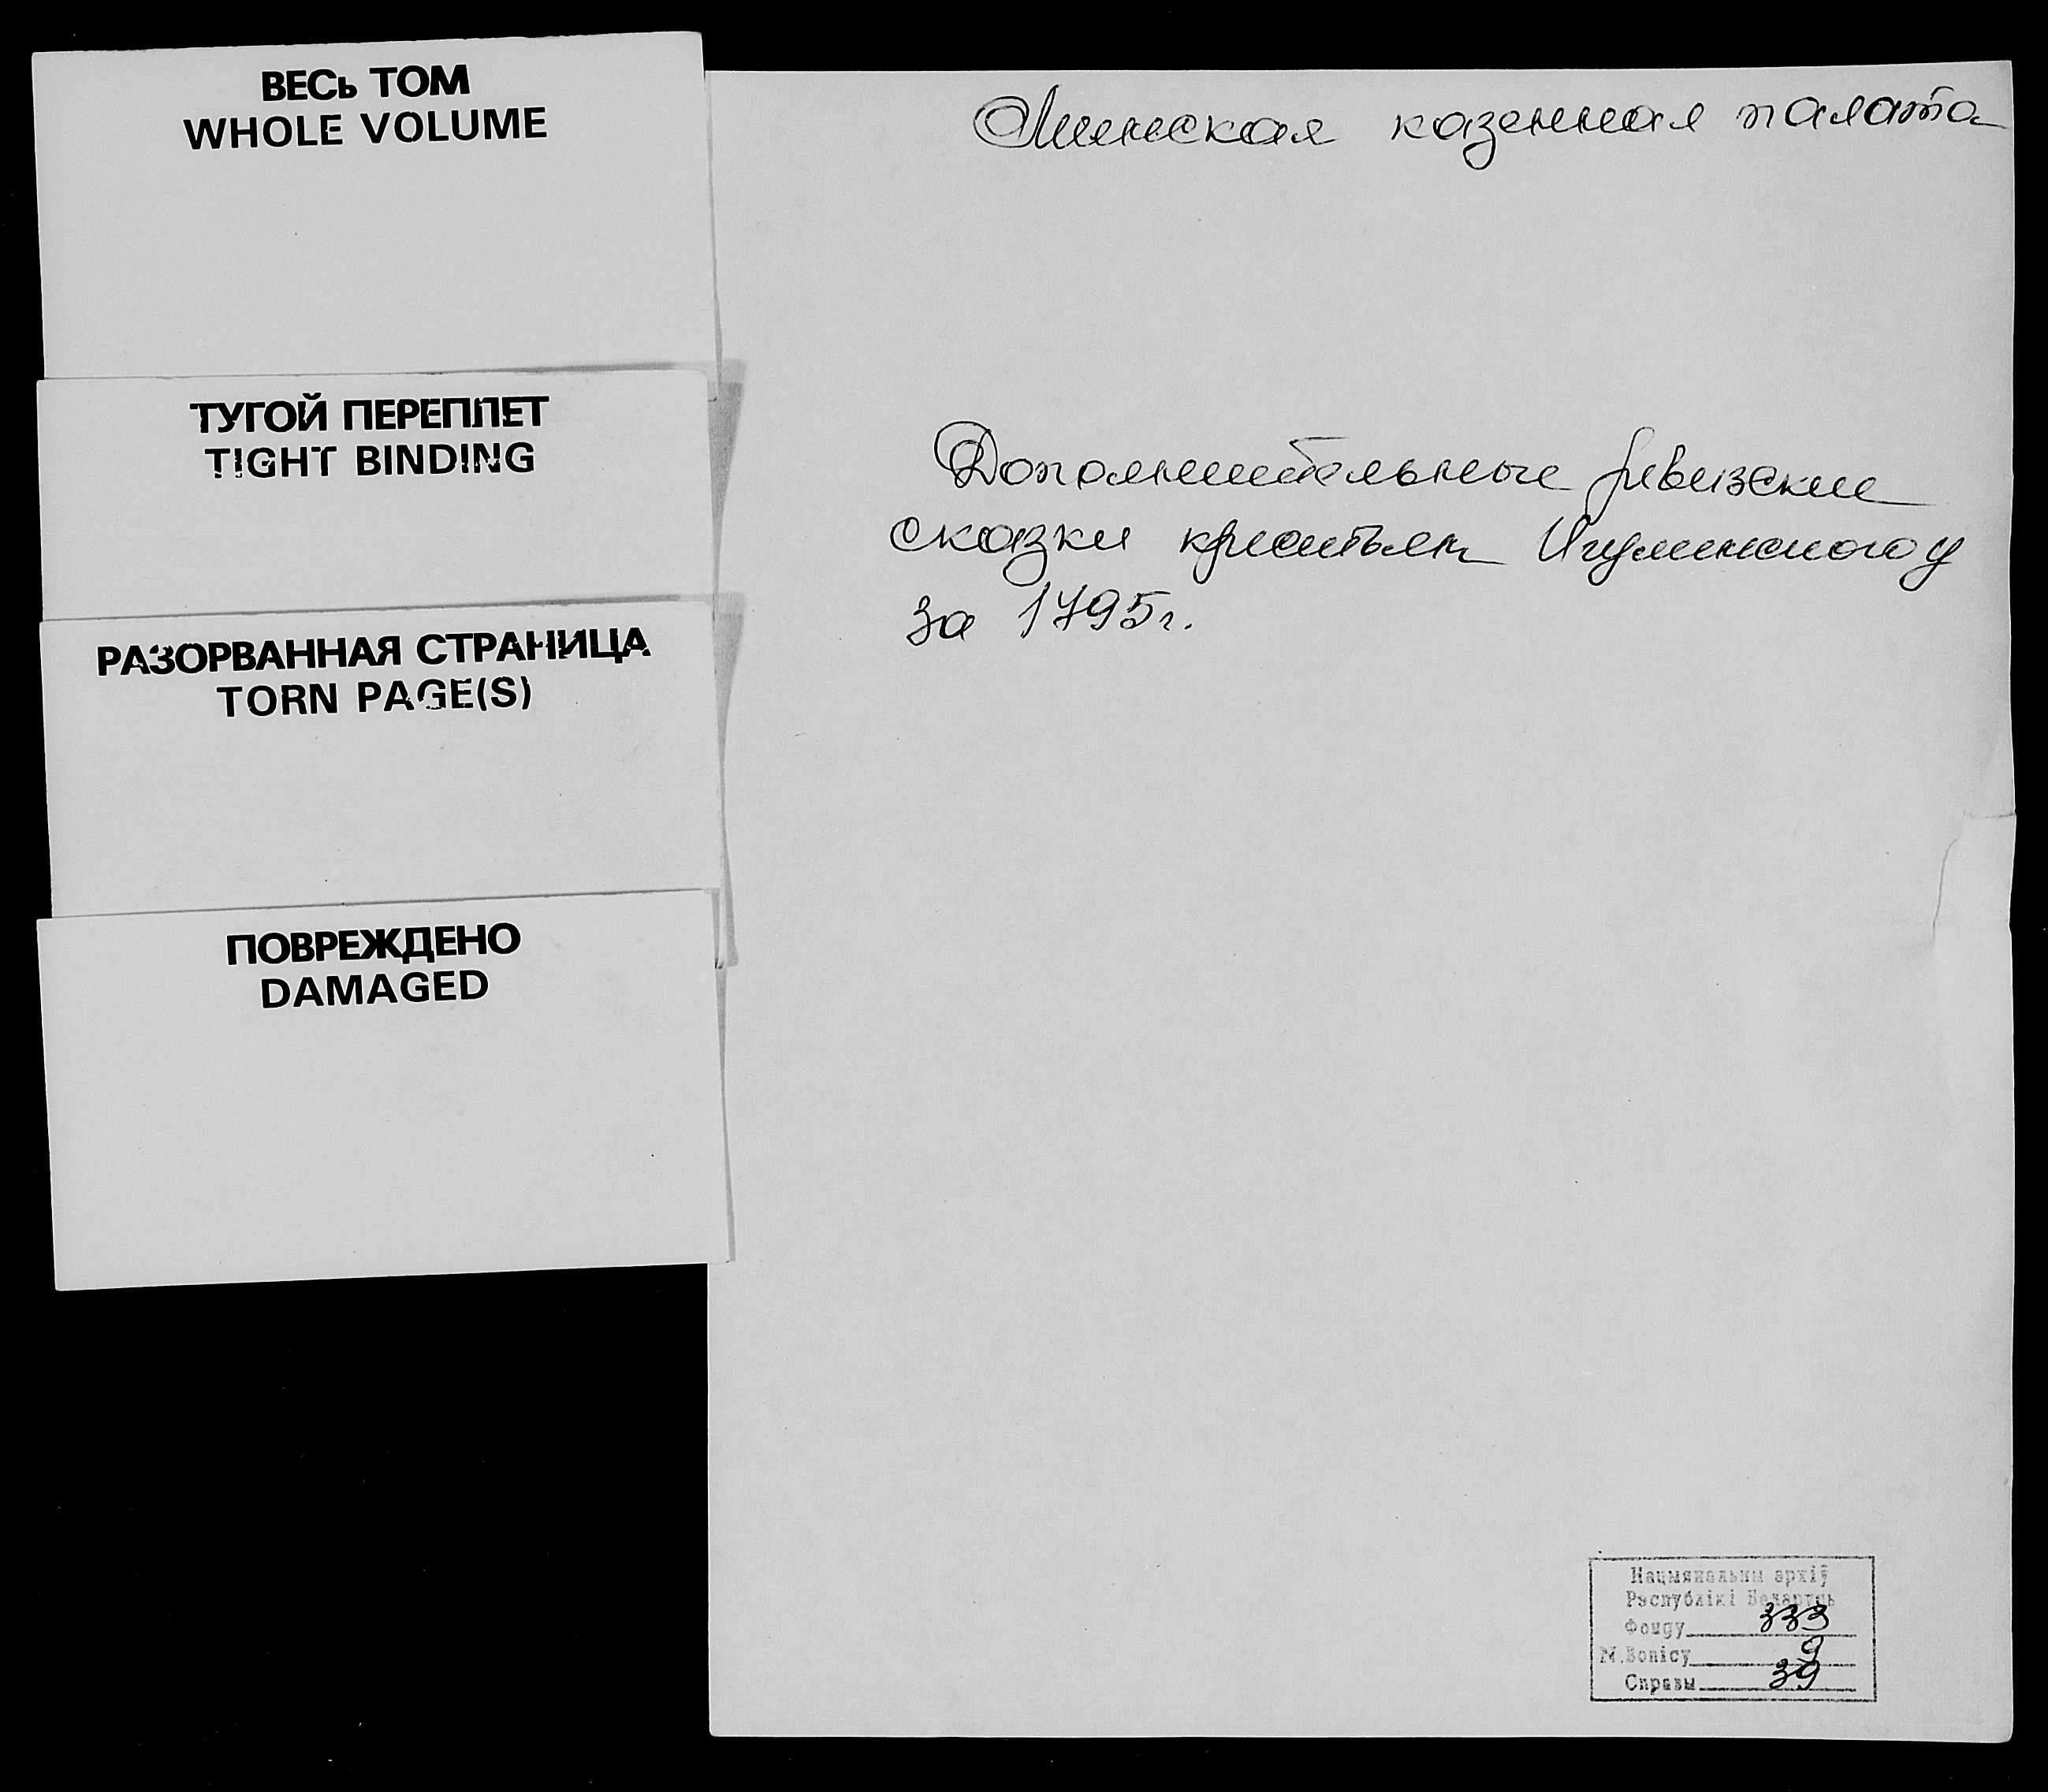 ВЕСЬ ТОМ
WHOLE VOLUME
ТУГОЙ ПЕРЕПЛЕТ
TIGHT BINDING
РАЗОРВАННАЯ СТРАНИЦА
TORN PAGE(S)
ПОВРЕЖДЕНО
DAMAGED
Минская казенная палата
Дополнительные ревизские
сказки крестьян Игуменского у
за 1795г.
Нацыянальны архіў
Рэспублікі Беларусь
Фонду 333
М.Вопісу 9
Справы 39